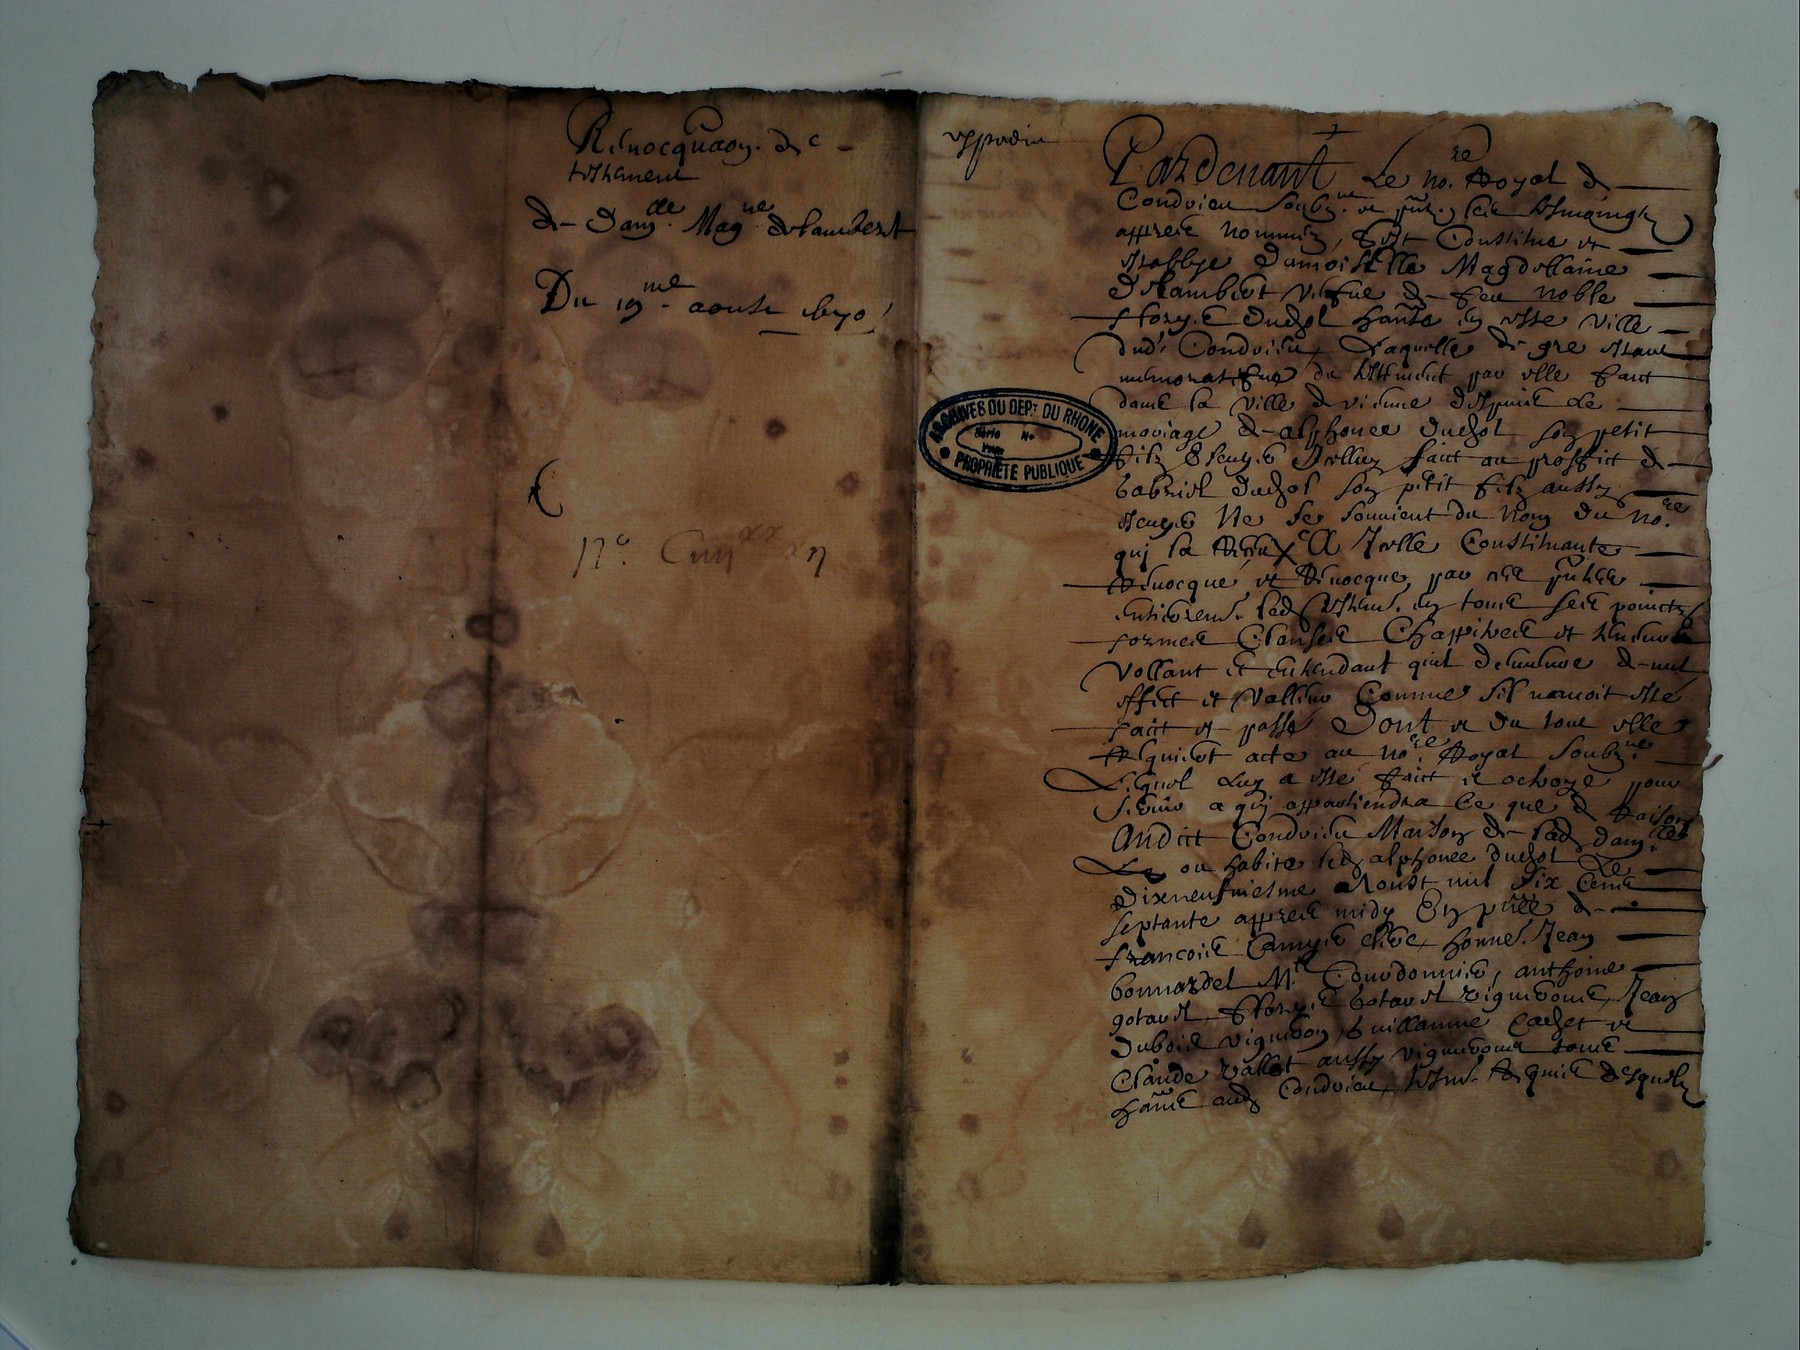 Revocquaon. de
testament
de dam.lle Mag.ne delambert
Du 19.me aoust 1670
N.o
expedie
ARCHIVES DU DEP.T DU RHONE
Série N.o
PROPRIÉTÉ PUBLIQUE
Pardevant Le no.re Royal de
Condrieu soubz.né et pñtz les tesmoingz
apprez nommez, s'est Constitué et
establye Damoiselle Magdellaine
Delambert vefve de feu noble
Duchol hañte en ceste ville
dud. Condrieu, Laquelle de gre estant
memorative du testment par elle faict
dans la ville de vienne
mariage de alphonce Duchol son petit
filz Escuyer Icelluy faict au proffict de
Gabriel Duchol son petit filz aussy
escuyer Ne se souvient du nom du no.re
qui la receu A Icelle Constituante
Revocqué et Revocque, par ces pñtes
entierem.t led. testam.t en tous ses pointz
formes Clauses Chappitres et teneur
Vollant et entendant qu'il demeure de nul
effect et valleur Comme s'il n'avoit esté
faict et passé Dont et du tout elle
Requiert acte au no.re Royal soubz.né
Lequel Luy a esté faict et octroyé pour
servir a qui appartiendra Ce que de Raison
Audict Condrieu Maison de lad. dam.lle
ou habite led. alphonce duchol Le
Dixneufviesme Aoust mil six Cens
septante apprez midy En pñce de
françois honne. Jean
bonnardel M.e Courdonnier, anthoine
gotarel, gotarel vignerons, Jean
Dubois vigneron, Guillaume Cachet et
Claude vallet aussy vignerons tous
hañts aud. Condrieu, tesm. Requis Desquelz